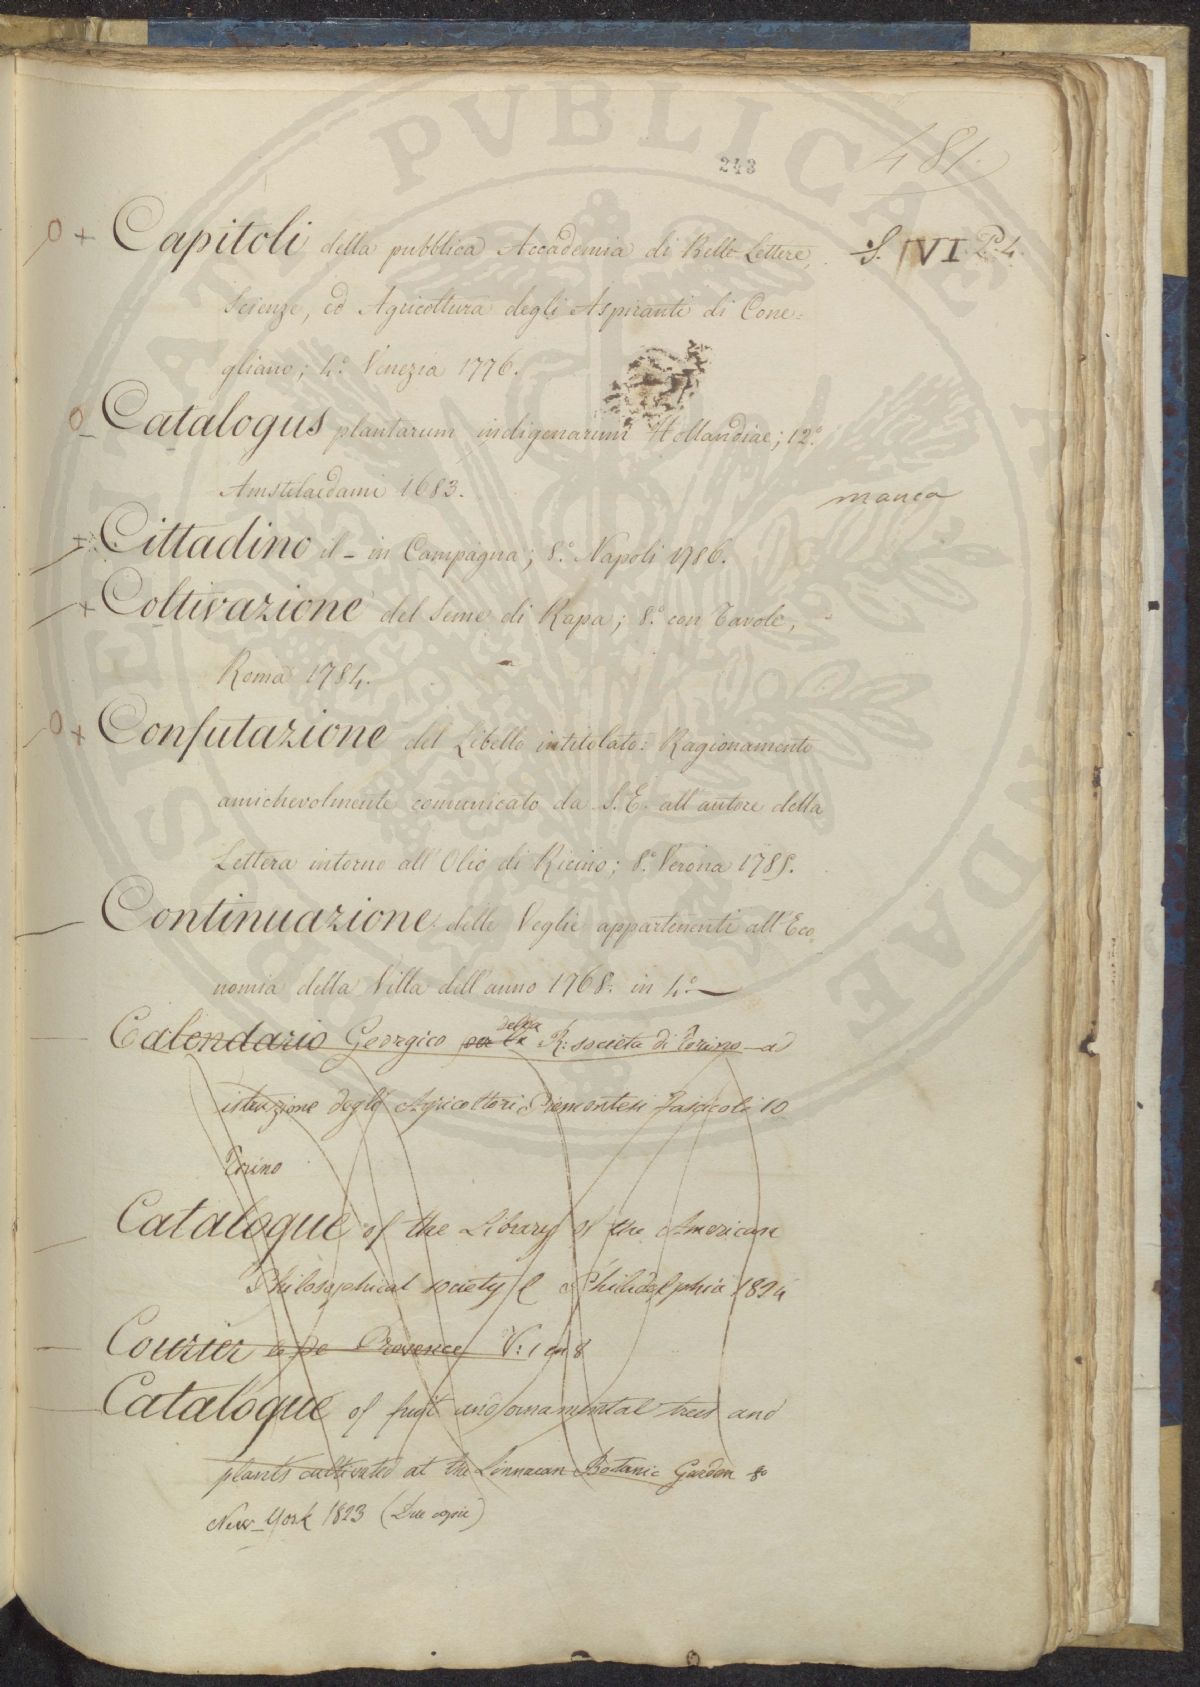 243
481.
Capitoli della pubblica Accademia di Belle Lettere, S. VI P. 4.
Scienze, ed Agricoltura degli Aspiranti di Cone=
gliano; 4.º Venezia 1776.
Catalogus plantarum indigenarum Hollandiae; 12.º
Amstelaedami 1683. manca
Cittadino il - in Campagna; 8.º Napoli 1786.
Coltivazione del Seme di Rapa; 8.º con Tavole,
Roma 1784.
Confutazione del Libello intitolato: Ragionamento
amichevolmente comunicato da S. E. all'autore della
Lettera intorno all'Olio di Ricino; 8.º Verona 1788.
Continuazione delle Veglie appartenenti all'Eco
nomia della Villa dell'anno 1768. in 4.º
Calendario Georgico per la della R: società di Torino ad
istruzione degli Agricoltori Piemontesi Fascicoli 10
Torino
Catalogue of the Library of the American
Philosophical society Philadelphia 1824
Courier de Provence V: 1 in 8
Catalogue of fruit and ornamental trees and
plants cultivated at the Linnaean Botanic Garden 8º
New-York 1823 (Due copie)